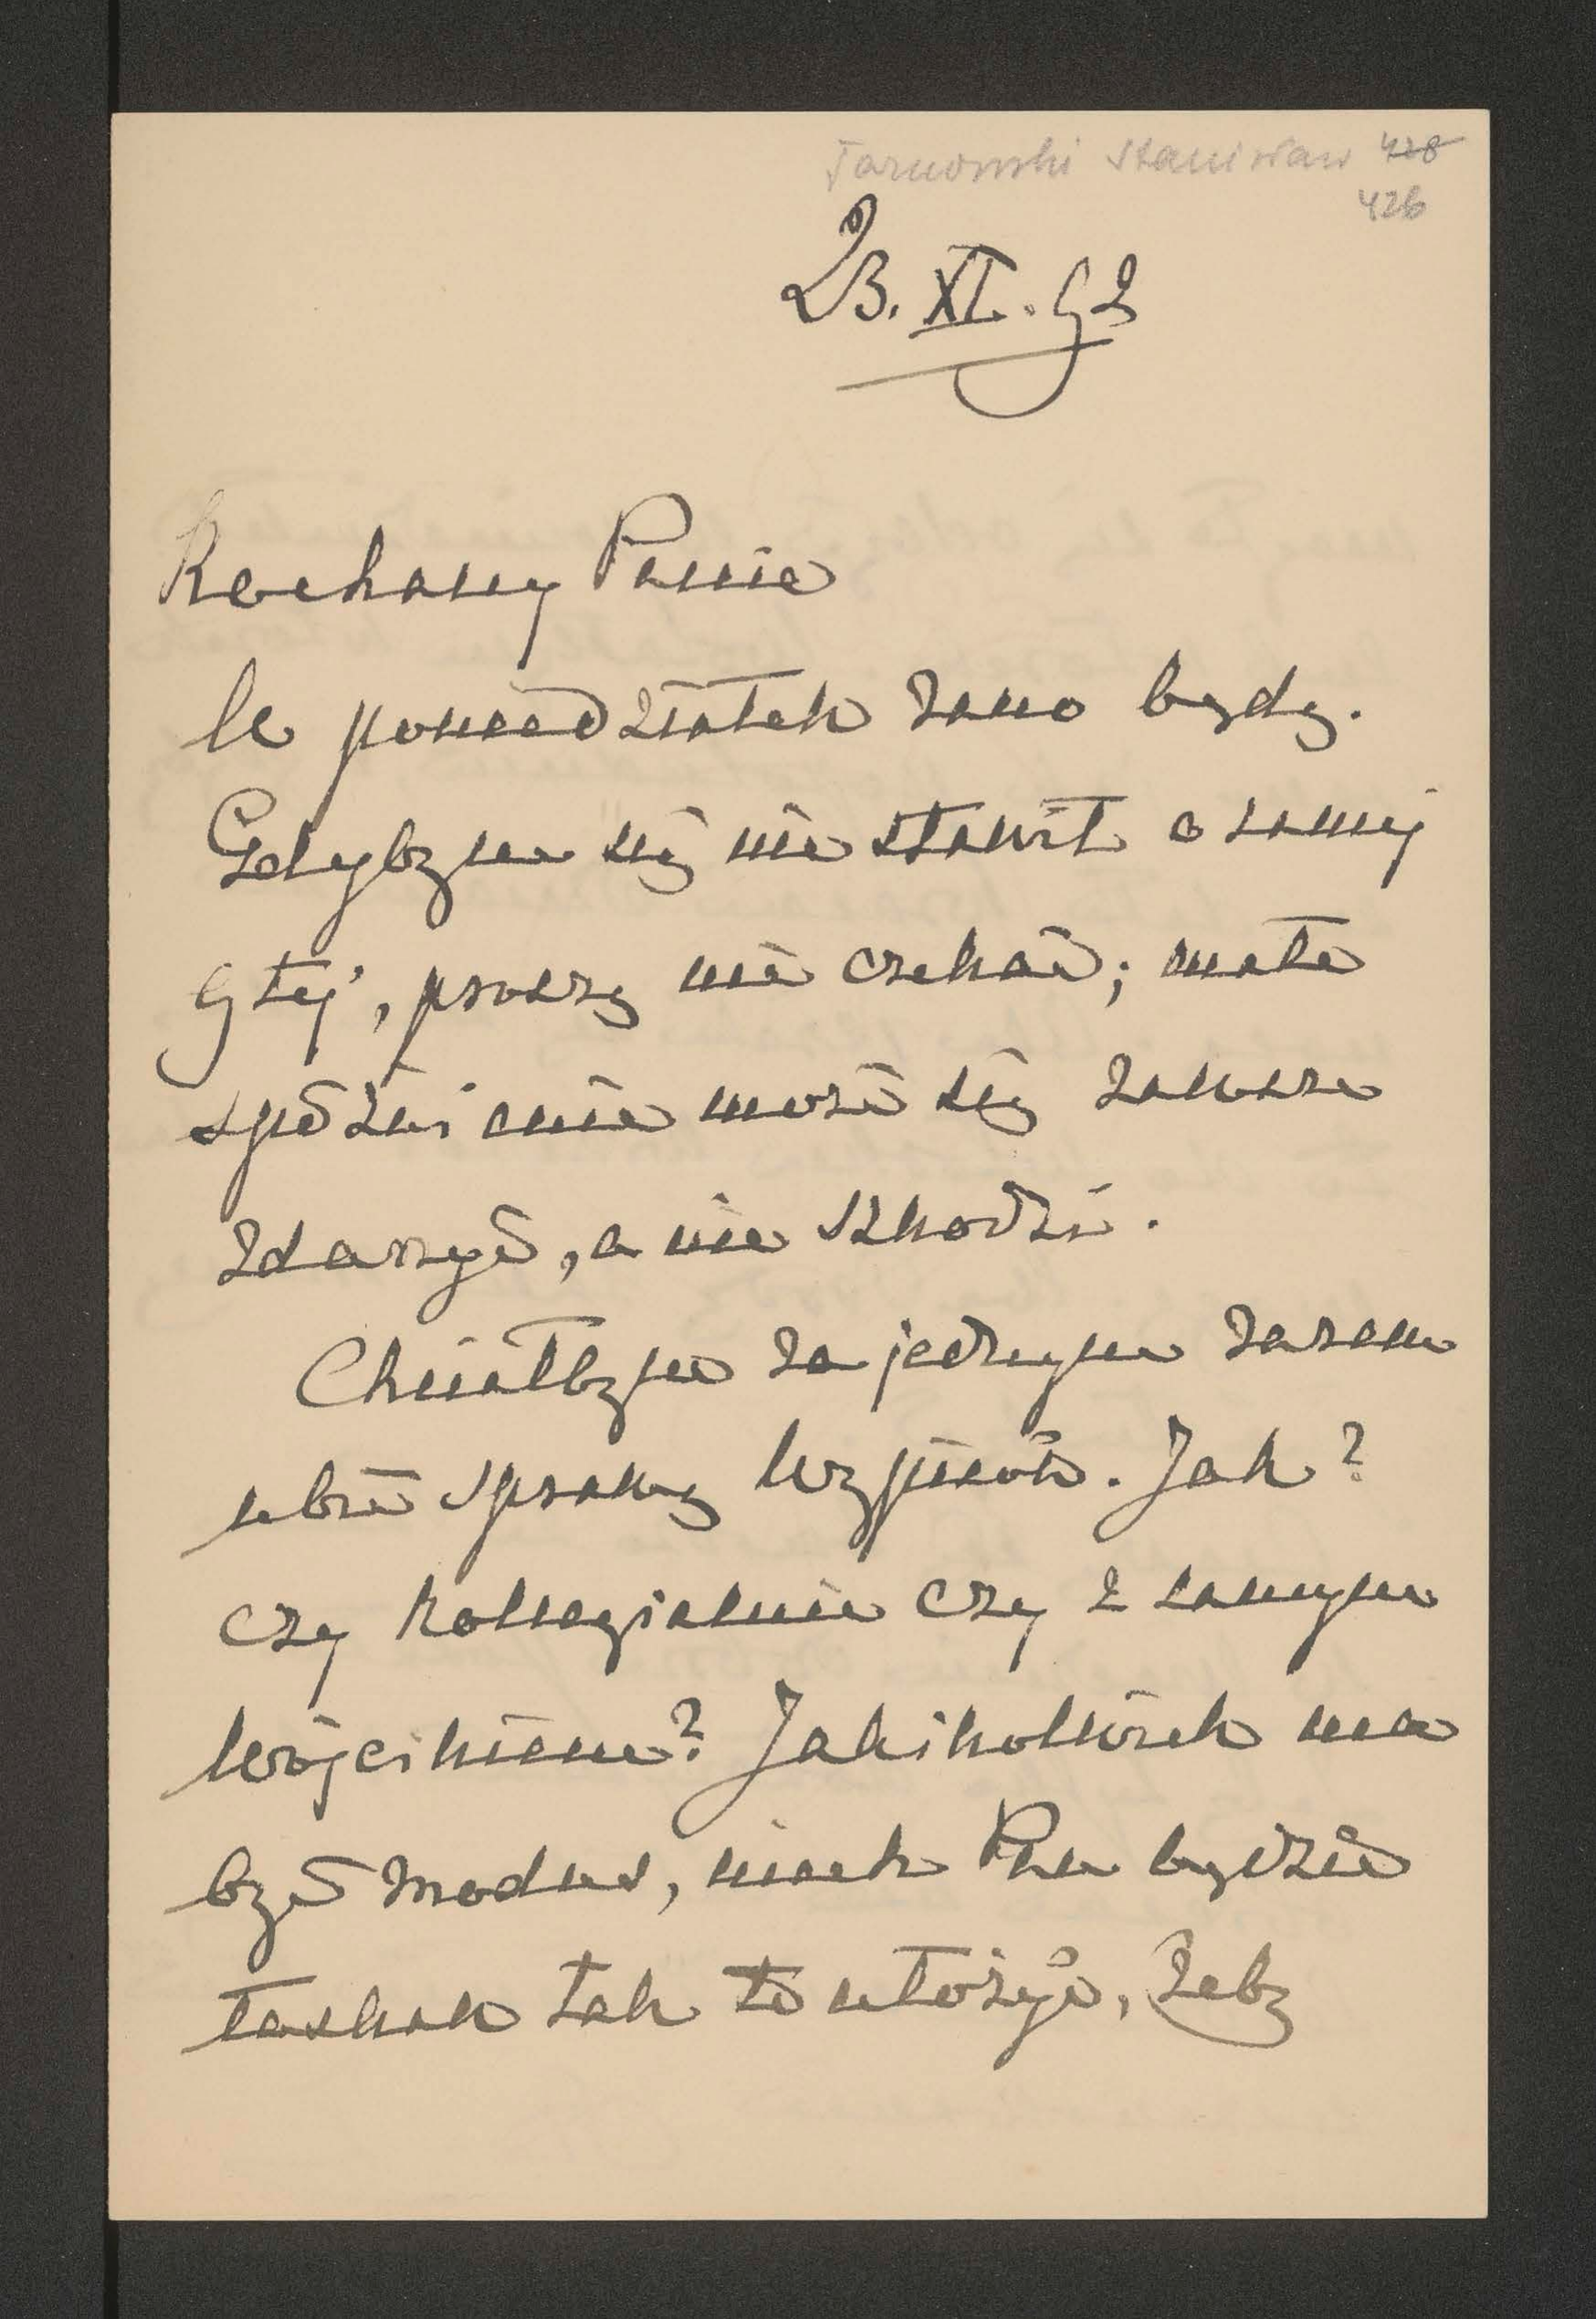 Tarnowski Stanisław 428
426
23. XI. 92
Kochany Panie
W poniedziałek rano będę.
Gdybym się nie stawił o samej
9tej, proszę nie czekać; małe
spóźnienie może się zawsze
zdarzyć, a nie szkodzi.
Chciałbym za jednym razem
ubić sprawę Wypisów. Jak?
czy kollegialnie czy z samym
Wójcikiem? Jakikolwiek ma
być modus, niech Pan będzie
łaskaw tak to ułożyć, żeby